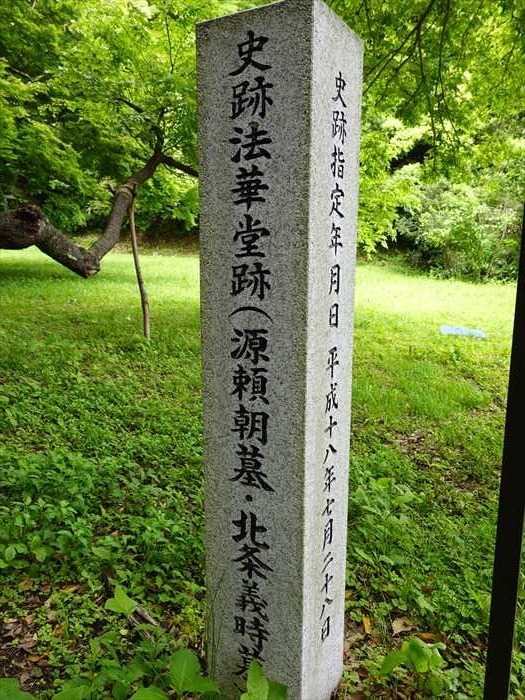 史跡法華堂跡(源頼朝墓・北条義時墓
史跡指定年月日 平成十八年七月二十八日